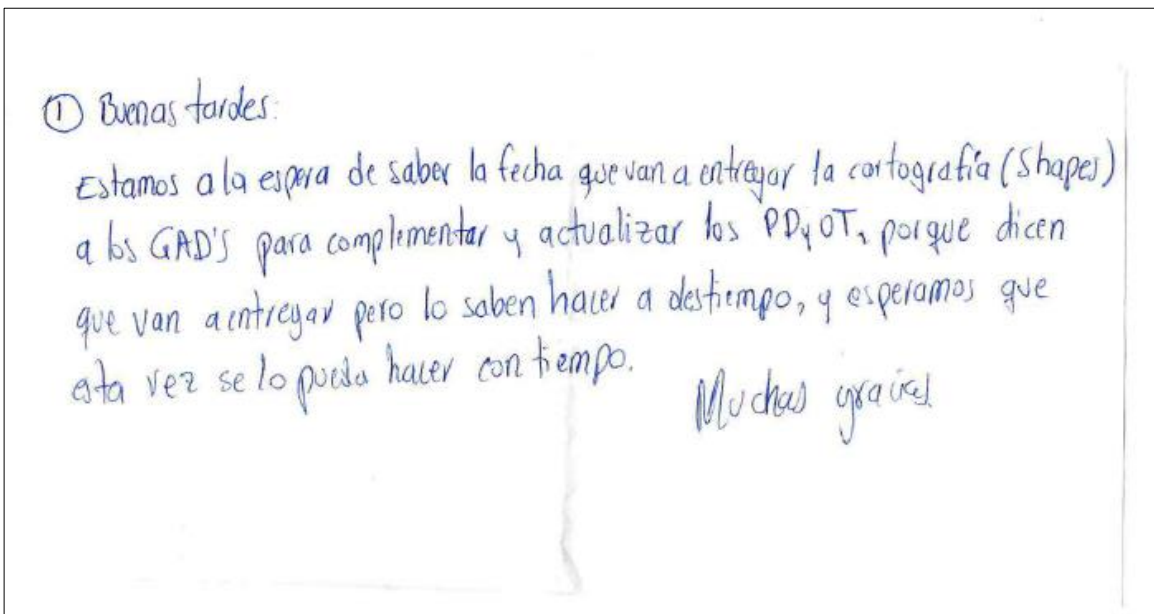 ① Buenas tardes:
Estamos a la espera de saber la fecha que van a entregar la cartografía (Shapes)
a los GAD'S para complementar y actualizar los PDyOT, porque dicen
que van a entregar pero lo saben hacer a destiempo, y esperamos que
esta vez se lo pueda hacer con tiempo.
Muchas gracias